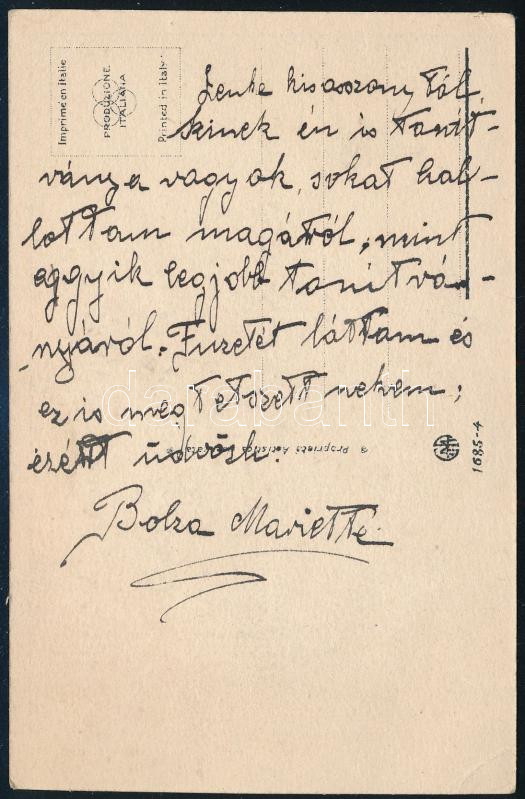 Imprimé en Italie
PRODUZIONE
ITALIANA
Printed in Italy
Lenke kisasszonytól,
kinek én is tanít-
ványa vagyok, sokat hal-
lottam magáról, mint
eggyik legjobb tanítvá-
nyáról. Fuzetét láttam és
ez is meg tetszett nekem;
ezért üdvözli:
Bolza Mariette.
Proprietà Artistica
1685-4
darabanth